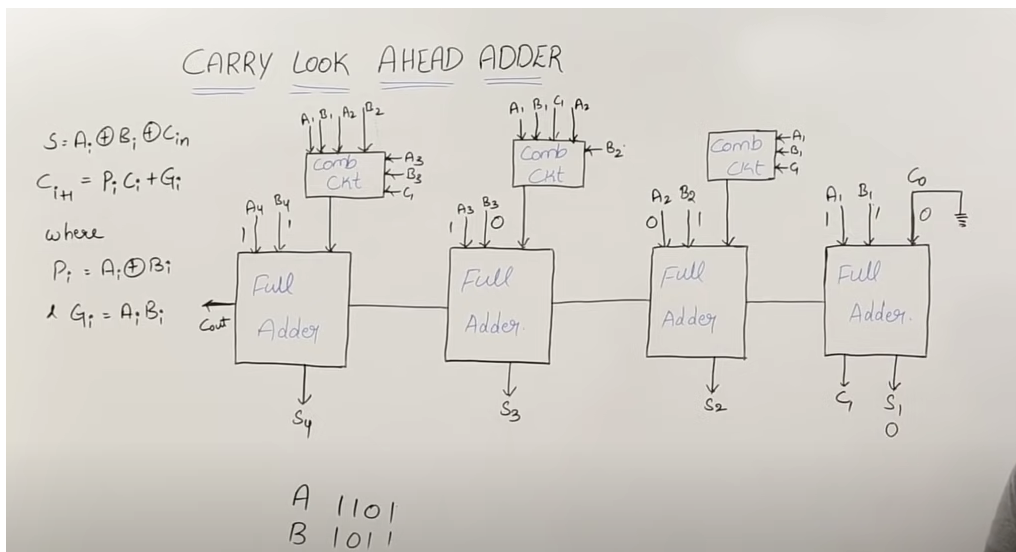 CARRY LOOK AHEAD ADDER
S = Ai ⊕ Bi ⊕ Cin
Ci+1 = Pi Ci + Gi
where
Pi = Ai ⊕ Bi
& Gi = Ai Bi
A1 B1 A2 B2
Comb
Ckt
A3
B3
C1
A4 B4
1 1
Full
Adder
Cout
S4
A1 B1 C1 A2
Comb
Ckt
B2
A3 B3
1 0
Full
Adder.
S3
Comb
Ckt
A1
B1
C1
A2 B2
0 1
Full
Adder
S2
A1 B1 C0
1 1 0
Full
Adder.
C1 S1
0
A 1101
B 1011